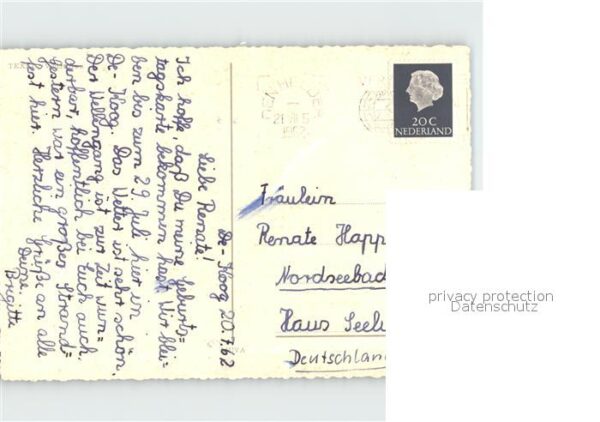 De-Koog 20.7.62
Liebe Renate!
Ich hoffe, daß Du meine Geburts=
tagskarte bekommen hast. Wir blei=
ben bis zum 29. Juli hier in
De-Koog. Das Wetter ist sehr schön.
Der Wellengang ist zur Zeit wun=
derbar, hoffentlich bei Euch auch.
Gestern war ein großes Strand=
fest hier. Herzliche Grüße an alle
Deine
Brigitte
DEN HELDER
1962
20 C
NEDERLAND
Fräulein
Renate Happ
Nordseebad
Haus Seel
Deutschland
privacy protection
Datenschutz